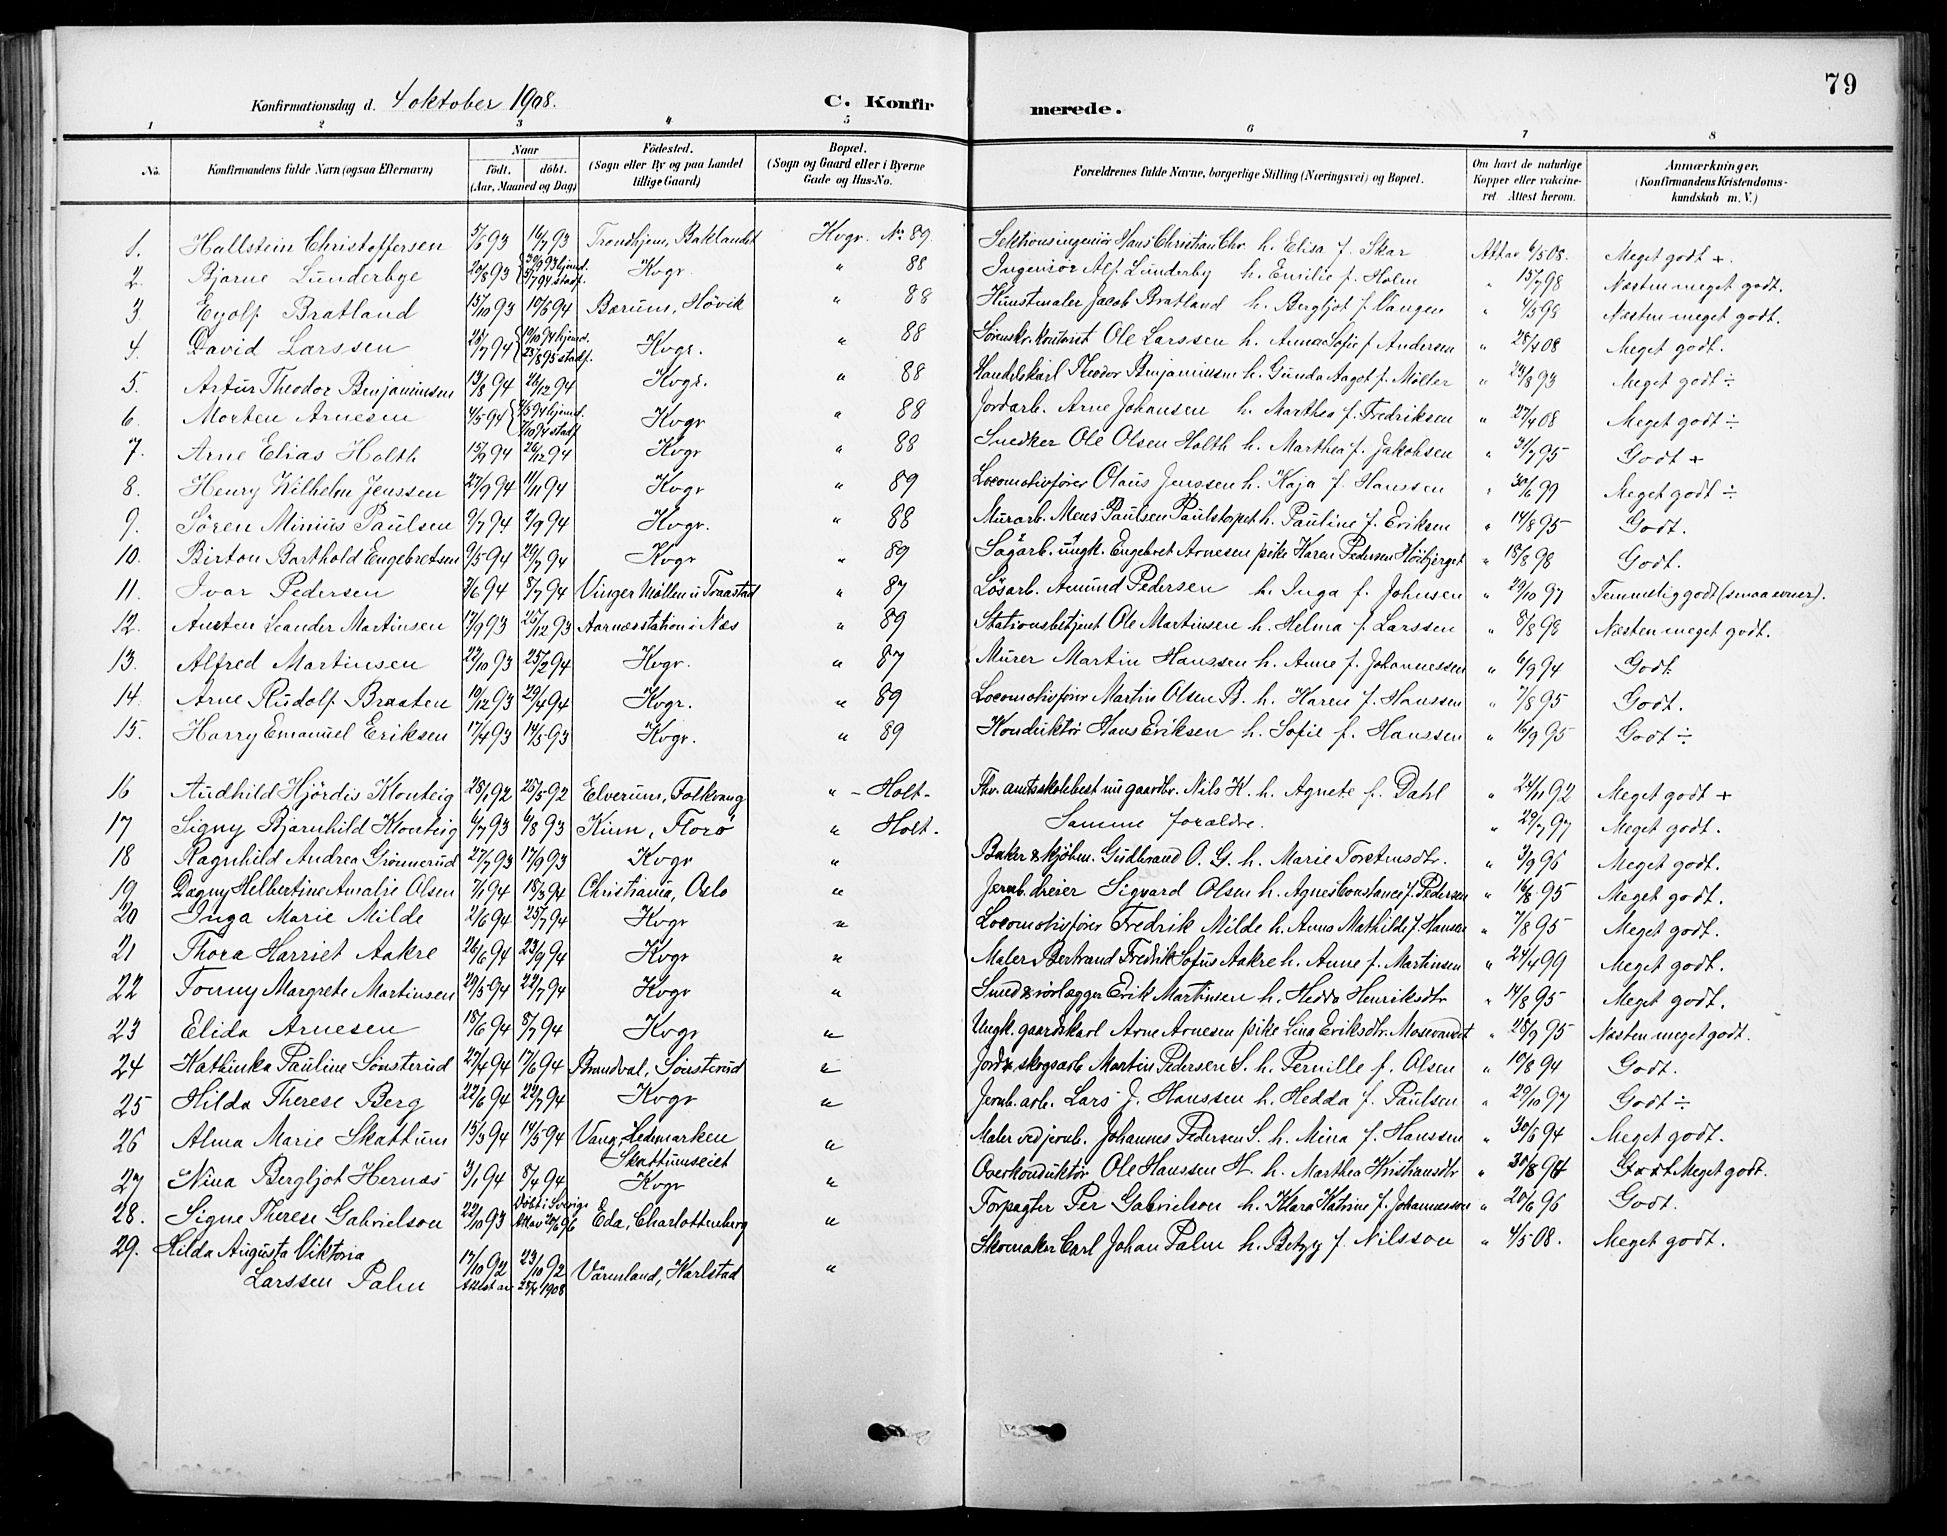 79
Konfirmationsdag d. 4 oktober 1908. C. Konfirmerede.
1 2 3 4 5 6 7 8
No. Konfirmandens fulde Navn (ogsaa Efternavn) Naar født. døbt. (Aar, Maaned og Dag) Fødested. (Sogn eller By og paa Landet tillige Gaard) Bopæl. (Sogn og Gaard eller i Byerne Gade og Hus-No. Forældrenes fulde Navne, borgerlige Stilling (Næringsvei) og Bopæl. Om havt de naturlige Kopper eller vakcineret Attest herom. Anmærkninger, (Konfirmandens Kristendomskundskab m. V.)
1. Hallstein Christoffersen 5/6 93 16/7 93 Trondhjem, Baklandet Kvgr. No 89. Sektionsingeniör Hans Christian Chr. h. Elisa f. Skar Att av 6/5 08. Meget godt +.
2. Bjarne Lunderbye 20/8 93 30/9 93 hjemd. 5/7 94 stadf. Kvgr. " 88 Ingeniör Alf Lunderby h. Emilie f. Holm " 15/7 98 Næsten meget godt.
3. Eyolf Bratland 15/10 93 10/6 94 Bærum, Høvik " 88 Kunstmaler Jacob Bratland h. Bergljot f. Vangen " 4/5 98 Næsten meget godt.
4. David Larssen 26/7 94 10/10 94 hjemd. 25/8 95 stadf. Kvgr. " 88 Sorenskr.kontorist Ole Larssen h. Anna Sofie f Andersen " 28/4 08 Meget godt.
5. Artur Theodor Benjaminsen 13/8 94 26/12 94 Kvgr. " 88 Handelskarl Theodor Benjaminsen h. Gunda Aagot f. Møller " 23/8 93 Meget godt ÷
6. Morten Arnesen 4/5 94 7/5 94 hjemd. 7/10 94 stadf. Kvgr " 88 Jordarb. Arne Johansen h. Marthea f. Fredriksen " 27/4 08 Meget godt ÷
7. Arne Elias Holth 15/9 94 26/12 94 Kvgr " 88 Snedker Ole Olsen Holth h. Marthea f. Jakobsen " 31/7 95 Godt +
8. Henry Wilhelm Jenssen 27/9 94 11/11 94 Kvgr " 89 Locomotivfører Olaus Jenssen h. Kaja f. Hanssen " 30/6 99 Meget godt ÷
9. Sören Minius Paulsen 9/7 94 2/9 94 Kvgr. " 88 Murarb. Mens Paulsen Paulstopet h. Pauline f. Eriksen " 14/8 95 Godt.
10. Birton Barthold Engebretsen 9/5 94 29/7 94 Kvgr " 89 Sagarb. ungk. Engebret Arnesen pike Karen Pedersen Höibjerget " 18/6 98 Godt.
11. Ivar Pedersen 2/6 94 8/7 94 Vinger Møllen u Traastad " 87 Lösarb. Amund Pedersen h. Inga f. Johnsen " 29/10 97 Temmelig godt (smaa evner).
12. Austen Leander Martinsen 17/9 93 25/12 93 Aarnæs station i Næs " 89 Stationsbetjent Ole Martinsen h. Helma f. Larssen " 8/8 98 Næsten meget godt.
13. Alfred Martinsen 22/10 93 25/2 94 Kvgr. " 87 Murer Martin Hanssen h. Anne f. Johannessen " 6/9 94 Godt.
14. Arne Rudolf Braaten 10/12 93 29/4 94 Kvgr. " 89 Locomotivfører Martin Olsen B. h. Karen f. Hanssen " 7/8 95 Godt.
15. Harry Emanuel Eriksen 17/4 93 14/5 93 Kvgr. " 89 Konduktör Hans Eriksen h. Sofie f. Hanssen " 16/9 95 Godt ÷
16 Audhild Hjördis Klonteig 28/1 92 25/5 92 Elverum, Folkvang " - Holt - Fhv. amtsskolebest nu gaardbr. Nils K. h. Agnete f. Dahl " 24/11 92 Meget godt +
17 Signy Bjarnhild Klonteig 6/7 93 6/8 93 Kinn, Florø " Holt - Samme forældre. " 29/7 97 Meget godt.
18 Ragnhild Andrea Grønnerud 27/7 93 17/9 93 Kvgr " Baker & kjøbm. Gudbrand O. G. h. Marie Torstensdtr. " 3/9 96 Meget godt.
19 Dagny Helbertine Amalie Olsen 7/1 94 18/3 94 Christiania, Oslo " Jernb.dreier Sigvard Olsen h. Agnes Constance f. Pedersen " 16/8 95 Meget godt.
20 Inga Marie Milde 2/6 94 25/7 94 Kvgr " Locomotivfører Fredrik Milde h. Anna Mathilde f. Hansen " 7/8 95 Meget godt.
21 Thora Harriet Aakre 26/6 94 23/9 94 Kvgr " Maler Bertrand Fredrik Sofus Aakre h. Anne f. Martinsen " 24/4 99 Meget godt.
22 Tonny Margrete Martinsen 29/5 94 22/7 94 Kvgr " Smed & rørlægger Erik Martinsen h. Hedda Henriksdtr " 14/8 95 Meget godt.
23 Elida Arnesen 18/6 94 8/7 94 Kvgr " Ungk. gaardskarl Arne Arnesen pike Lina Eriksdtr. Mosevandet " 28/9 95 Næsten meget godt.
24 Kathinka Pauline Sønsterud 27/4 94 17/6 94 Brandval, Sønsterud " Jord & skogsarb Martin Pedersen S. h. Pernille f. Olsen " 10/8 94 Godt.
25 Hilda Therese Berg 22/6 94 22/7 94 Kvgr " Jernb. arb. Lars J. Hanssen h. Hedda f. Paulsen " 29/10 97 Godt ÷
26 Alma Marie Skattum 15/3 94 14/5 94 Vang, Hedemarken Skattumseiet " Maler ved jernb. Johannes Pedersen S. h. Mina f. Hanssen " 30/6 94 Meget godt.
27 Nina Bergljot Hernæs 3/1 94 8/4 94 Kvgr " Overkonduktör Ole Hanssen H. h. Marthea Kristiansdtr " 30/8 94 Godt Meget godt.
28. Signe Therese Gabrielson 22/10 93 Døbt i Sverige Att av 20/6 96 Eda, Charlottenberg " Torpagter Per Gabrielson h. Klara Katrine f. Johannesson " 20/6 96 Godt.
29. Hilda Augusta Viktoria Larssen Palm 17/10 92 23/10 92 Attest av 28/4 1908 Värmland, Karlstad " Skomaker Carl Johan Palm h. Betzy f. Nilsson " 4/5 08. Meget godt.